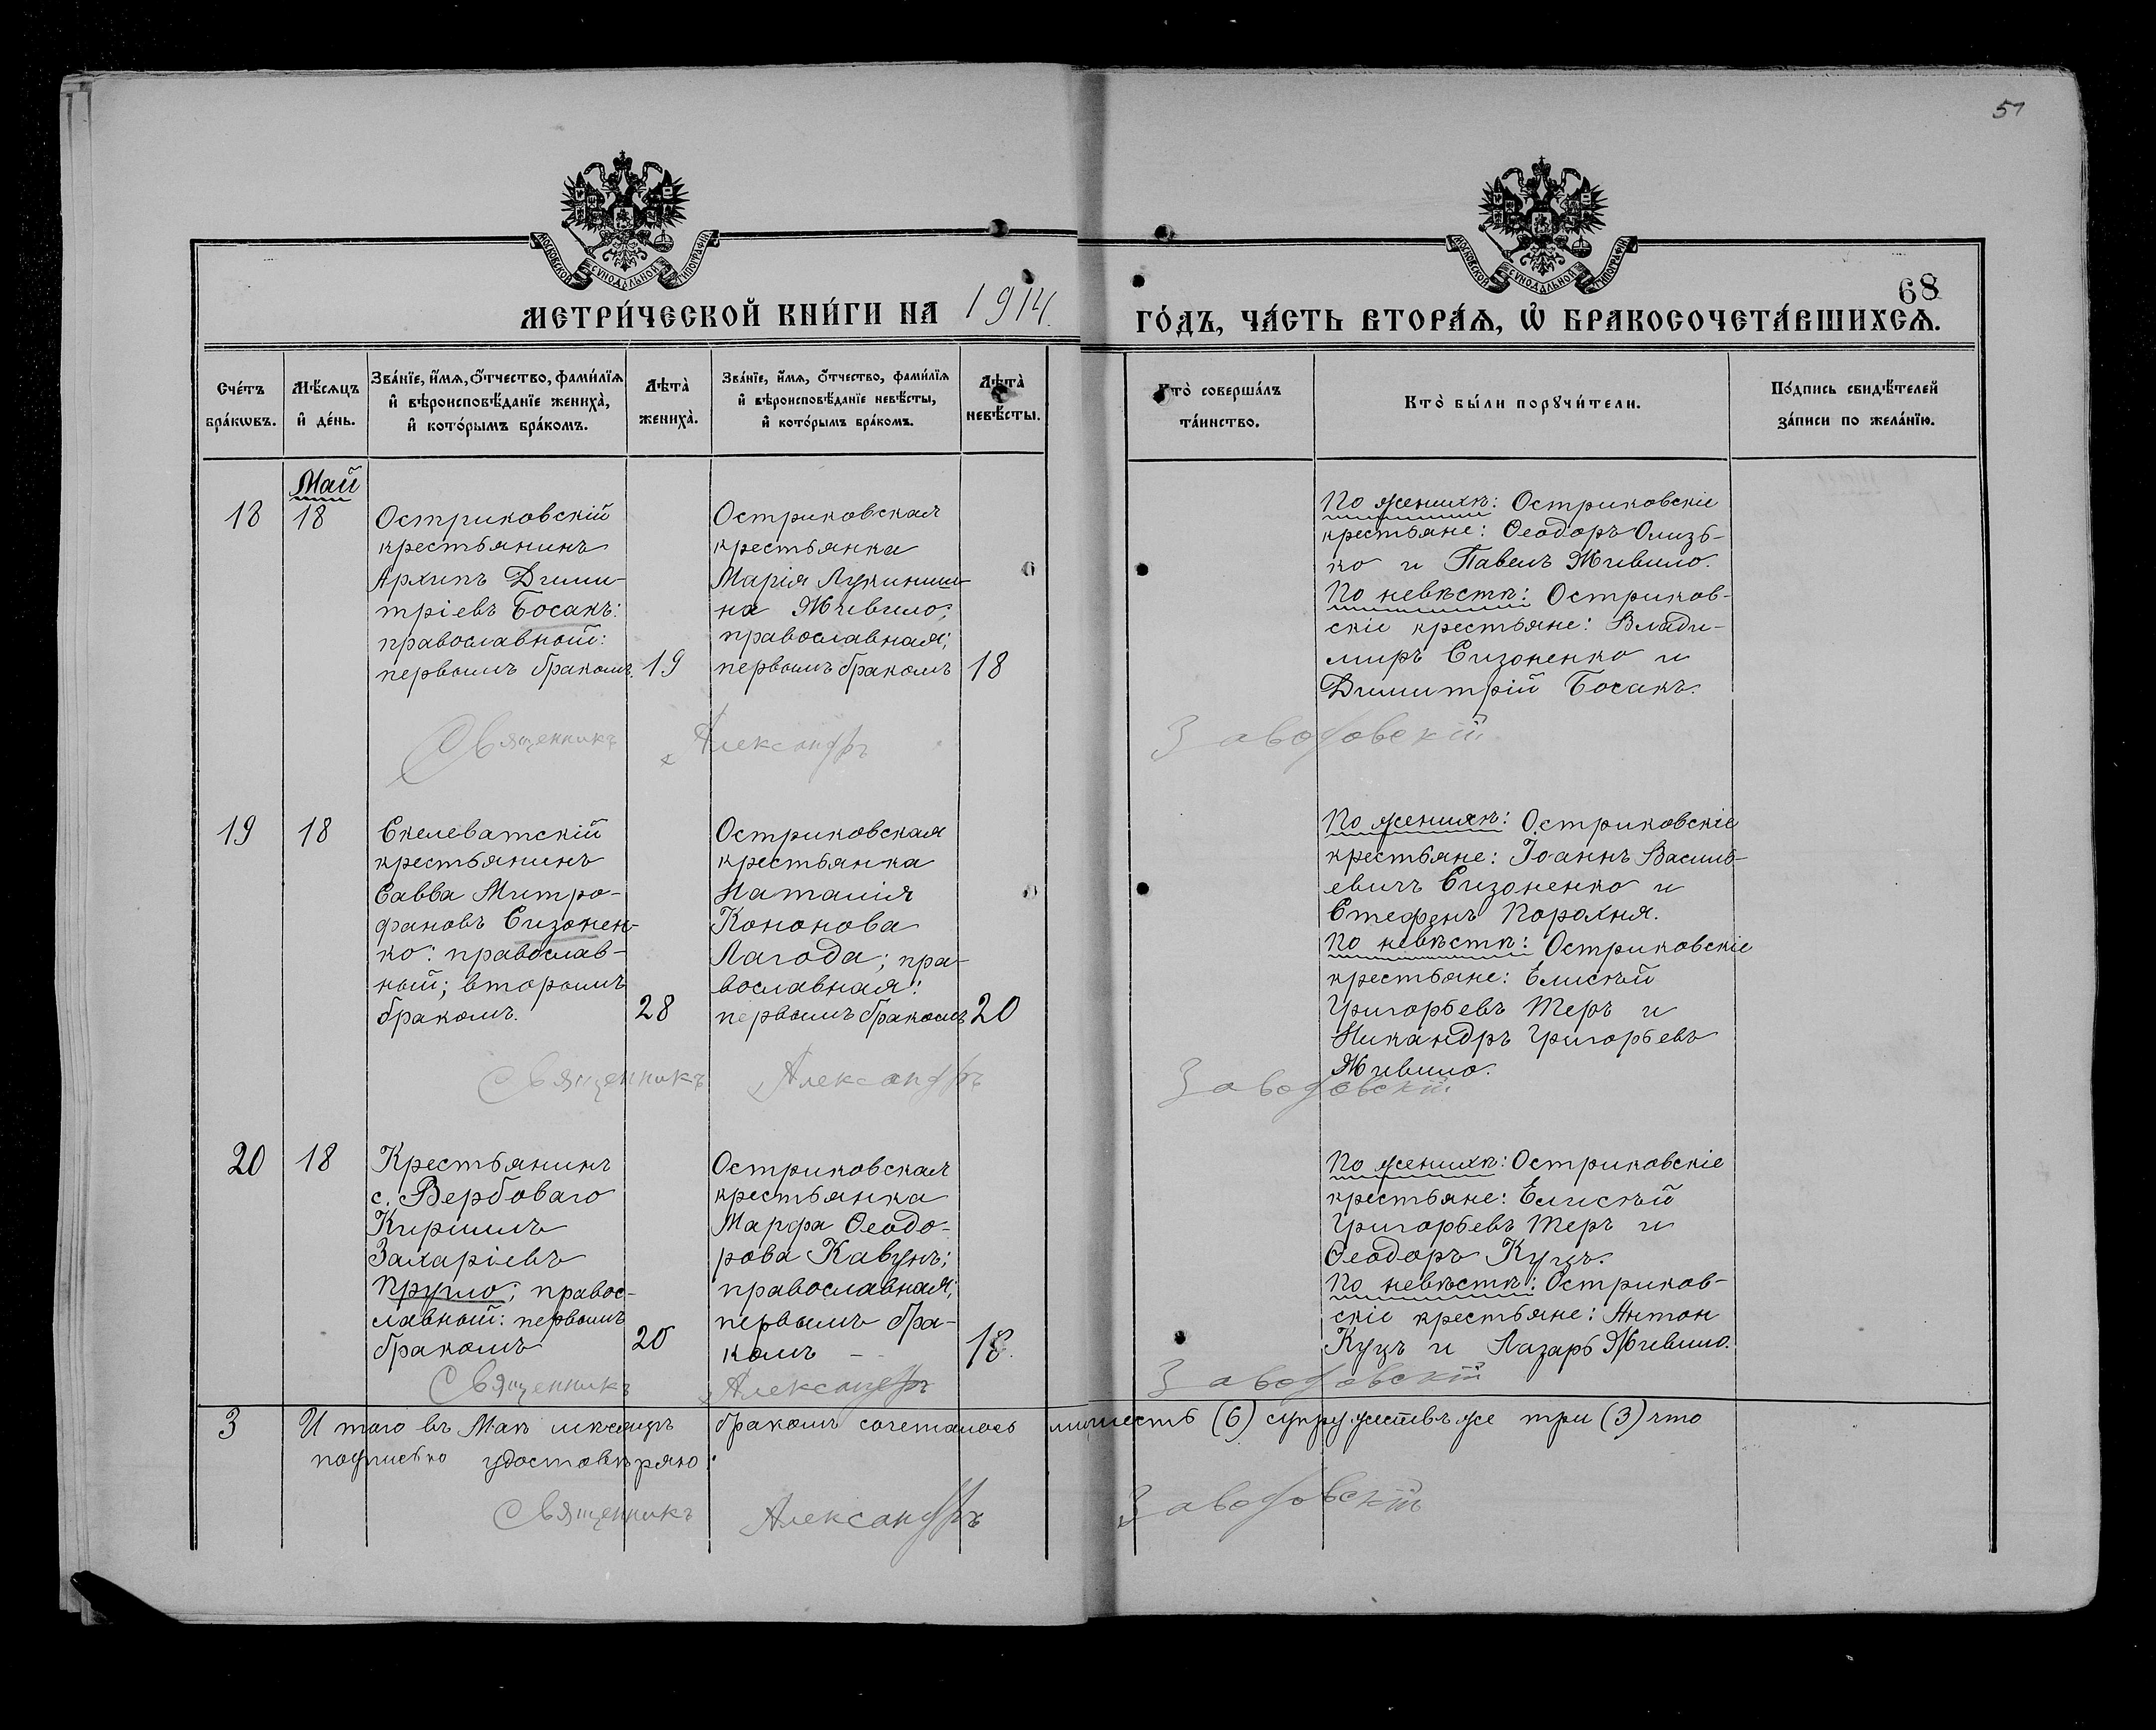 51
МОСКОВСКОЙ СѴНОДАЛЬНОЙ ТИПОГРАФІИ
МОСКОВСКОЙ СѴНОДАЛЬНОЙ ТИПОГРАФІИ
68
МЕТРИ́ЧЕСКОЙ КНИ́ГИ НА 1914.
ГО́ДЪ, ЧА́СТЬ ВТОРА́Ѧ, Ѽ БРАКОСОЧЕТА́ВШИХСѦ.
Сче́тъ
бра́кѡвъ.
Мѣ́сѧцъ
и҆ де́нь.
Зва́нїе, и҆́мѧ, ѻ҆́тчество, фами́лїѧ
и҆ вѣроисповѣ́данїе жениха̀,
и҆ кото́рымъ бра́комъ.
Лѣта̀
жениха̀.
Зва́нїе, и҆́мѧ, ѻ҆́тчество, фами́лїѧ
и҆ вѣроисповѣ́данїе невѣ́сты,
и҆ кото́рымъ бра́комъ.
Лѣта̀
невѣ́сты.
Кто̀ соверша́лъ
та́инство.
Кто̀ бы́ли порꙋчи́тели.
По́дпись свидѣ́телей
за́писи по жела́нїю.
Май
18
18
Остриковскій
крестьянинъ
Архипъ Дими-
тріевъ Босакъ:
православный:
первымъ бракомъ.
19
Остриковская
крестьянка
Марія Лукиниш-
на Живило;
православная;
первымъ бракомъ
18
По женихѣ: Остриковскіе
крестьяне: Ѳеодоръ Олизь-
ко и Павелъ Живило.
По невѣстѣ: Остриков-
скіе крестьяне: Влади-
миръ Сизоненко и
Димитрій Босакъ.
Священникъ Александръ Заводовскій
19
18
Скелеватскій
крестьянинъ
Савва Митро-
фановъ Сизонен-
ко: православ-
ный; вторымъ
бракомъ.
28
Остриковская
крестьянка
Наталія
Кононова
Лагода; пра-
вославная:
первымъ бракомъ
20
По женихѣ: Остриковскіе
крестьяне: Іоаннъ Василь-
евичъ Сизоненко и
Стефанъ Порохня.
По невѣстѣ: Остриковскіе
крестьяне: Елисѣй
Григорьевъ Теръ и
Никандръ Григорьевъ
Живило.
Священникъ Александръ Заводовскій
20
18
Крестьянинъ
с. Вербоваго
Кириллъ
Захаріевъ
Пругло; правос-
лавный: первымъ
бракомъ
20
Остриковская
крестьянка
Марфа Ѳеодо-
рова Кавунъ;
православная;
первымъ бра-
комъ
18.
По женихѣ: Остриковскіе
крестьяне: Елисѣй
Григорьевъ Теръ и
Ѳеодоръ Куцъ.
По невѣстѣ: Остриков-
скіе крестьяне: Антон
Куцъ и Лазарь Живило.
Священникъ Александръ Заводовскій
3 Итого въ Маѣ мѣсяцѣ бракомъ сочеталось лицъ шесть (6) супружествъ же три (3) что
подписью удостовѣряю:
Священникъ Александръ Заводовскій